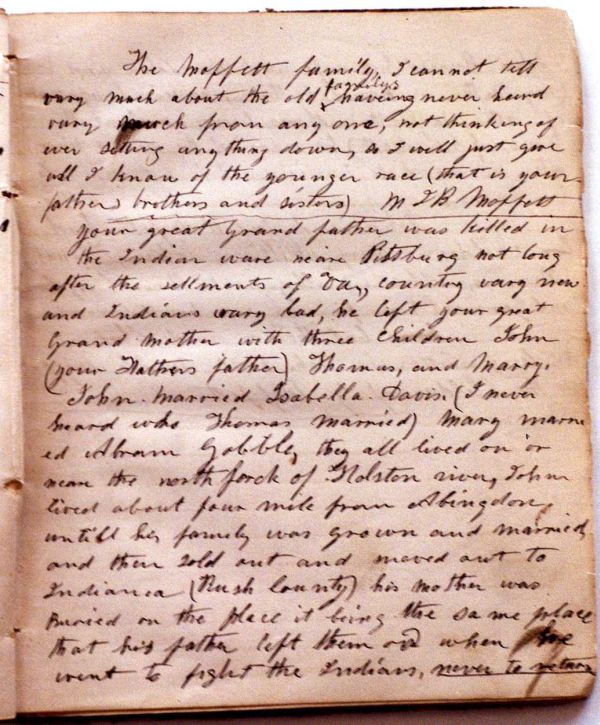 The Moffett family, I cannot tell
vary much about the old family's haveing never heard
vary much from any one, not thinking of
ever setting anything down, so I will just give
all I know of the younger race (that is your
father brothers and sisters) M I B Moffett
your great Grand father was killed in
the Indian ware neare Pittsburg not long
after the sellments of Va, country vary new
and Indians vary bad, he left your great
Grand Mother with three Children John
(your Fathers father) Thomas, and Marry.
John Married Isabella Davis (I never
heard who Thomas married) Mary marri
ed Abram Gobble, they all lived on or
neare the north forck of Holston river, John
lived about four mile from Abingdon,
untill his family was grown and married,
and then sold out and moved out to
Indianea (Rush County) his Mother was
Buried on the place it being the same place
that his father left them on when he
went to fight the Indians, never to return